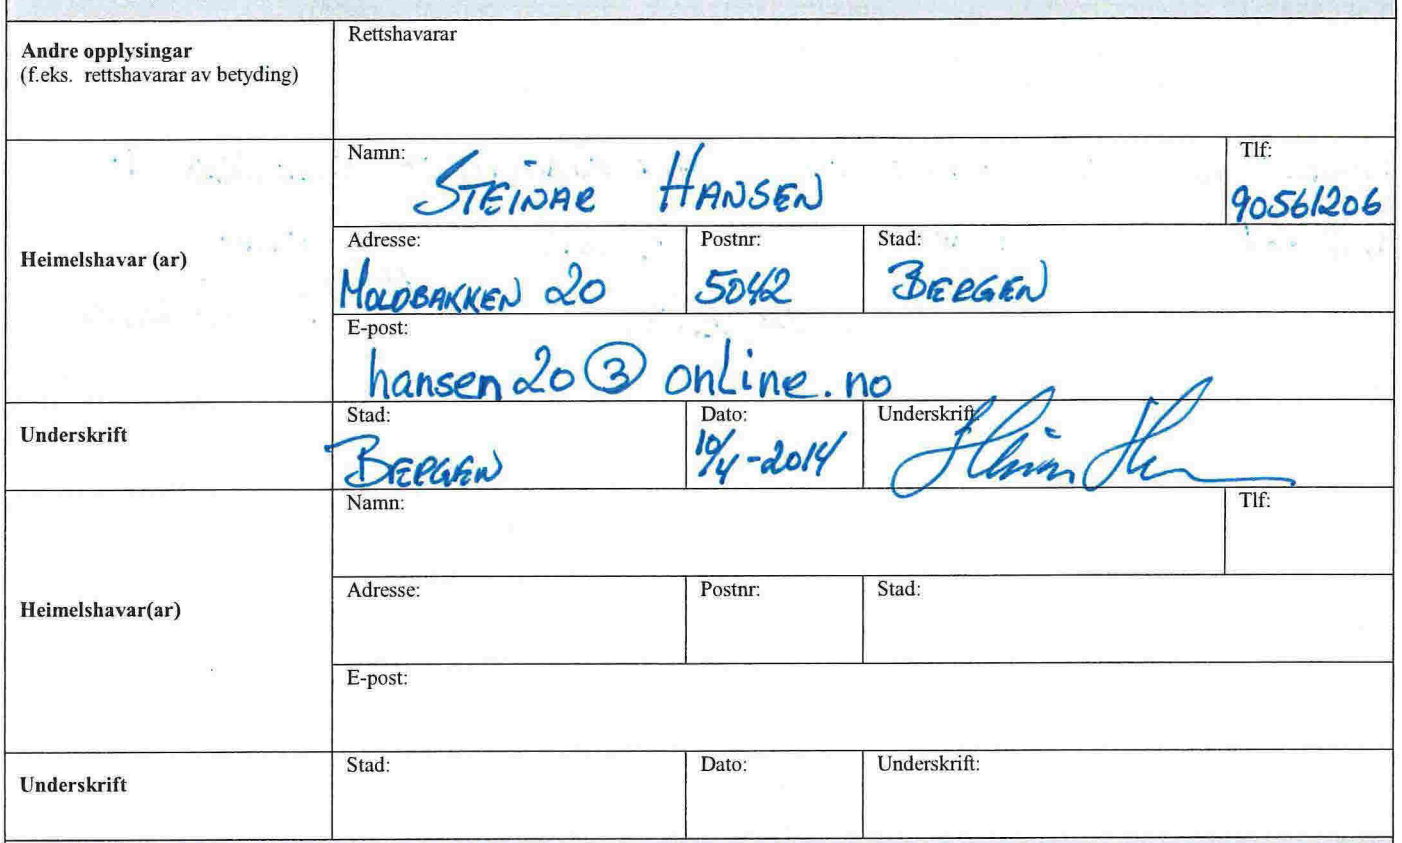 Andre opplysingar
(f.eks. rettshavarar av betyding)
Rettshavarar
Heimelshavar (ar)
Namn: STEINAR HANSEN
Tlf: 90561206
Adresse: MOLDBAKKEN 20
Postnr: 5042
Stad: BERGEN
E-post: hansen20③online.no
Underskrift
Stad: BERGEN
Dato: 10/4-2014
Underskrift:
Heimelshavar(ar)
Namn:
Tlf:
Adresse:
Postnr:
Stad:
E-post:
Underskrift
Stad:
Dato:
Underskrift: